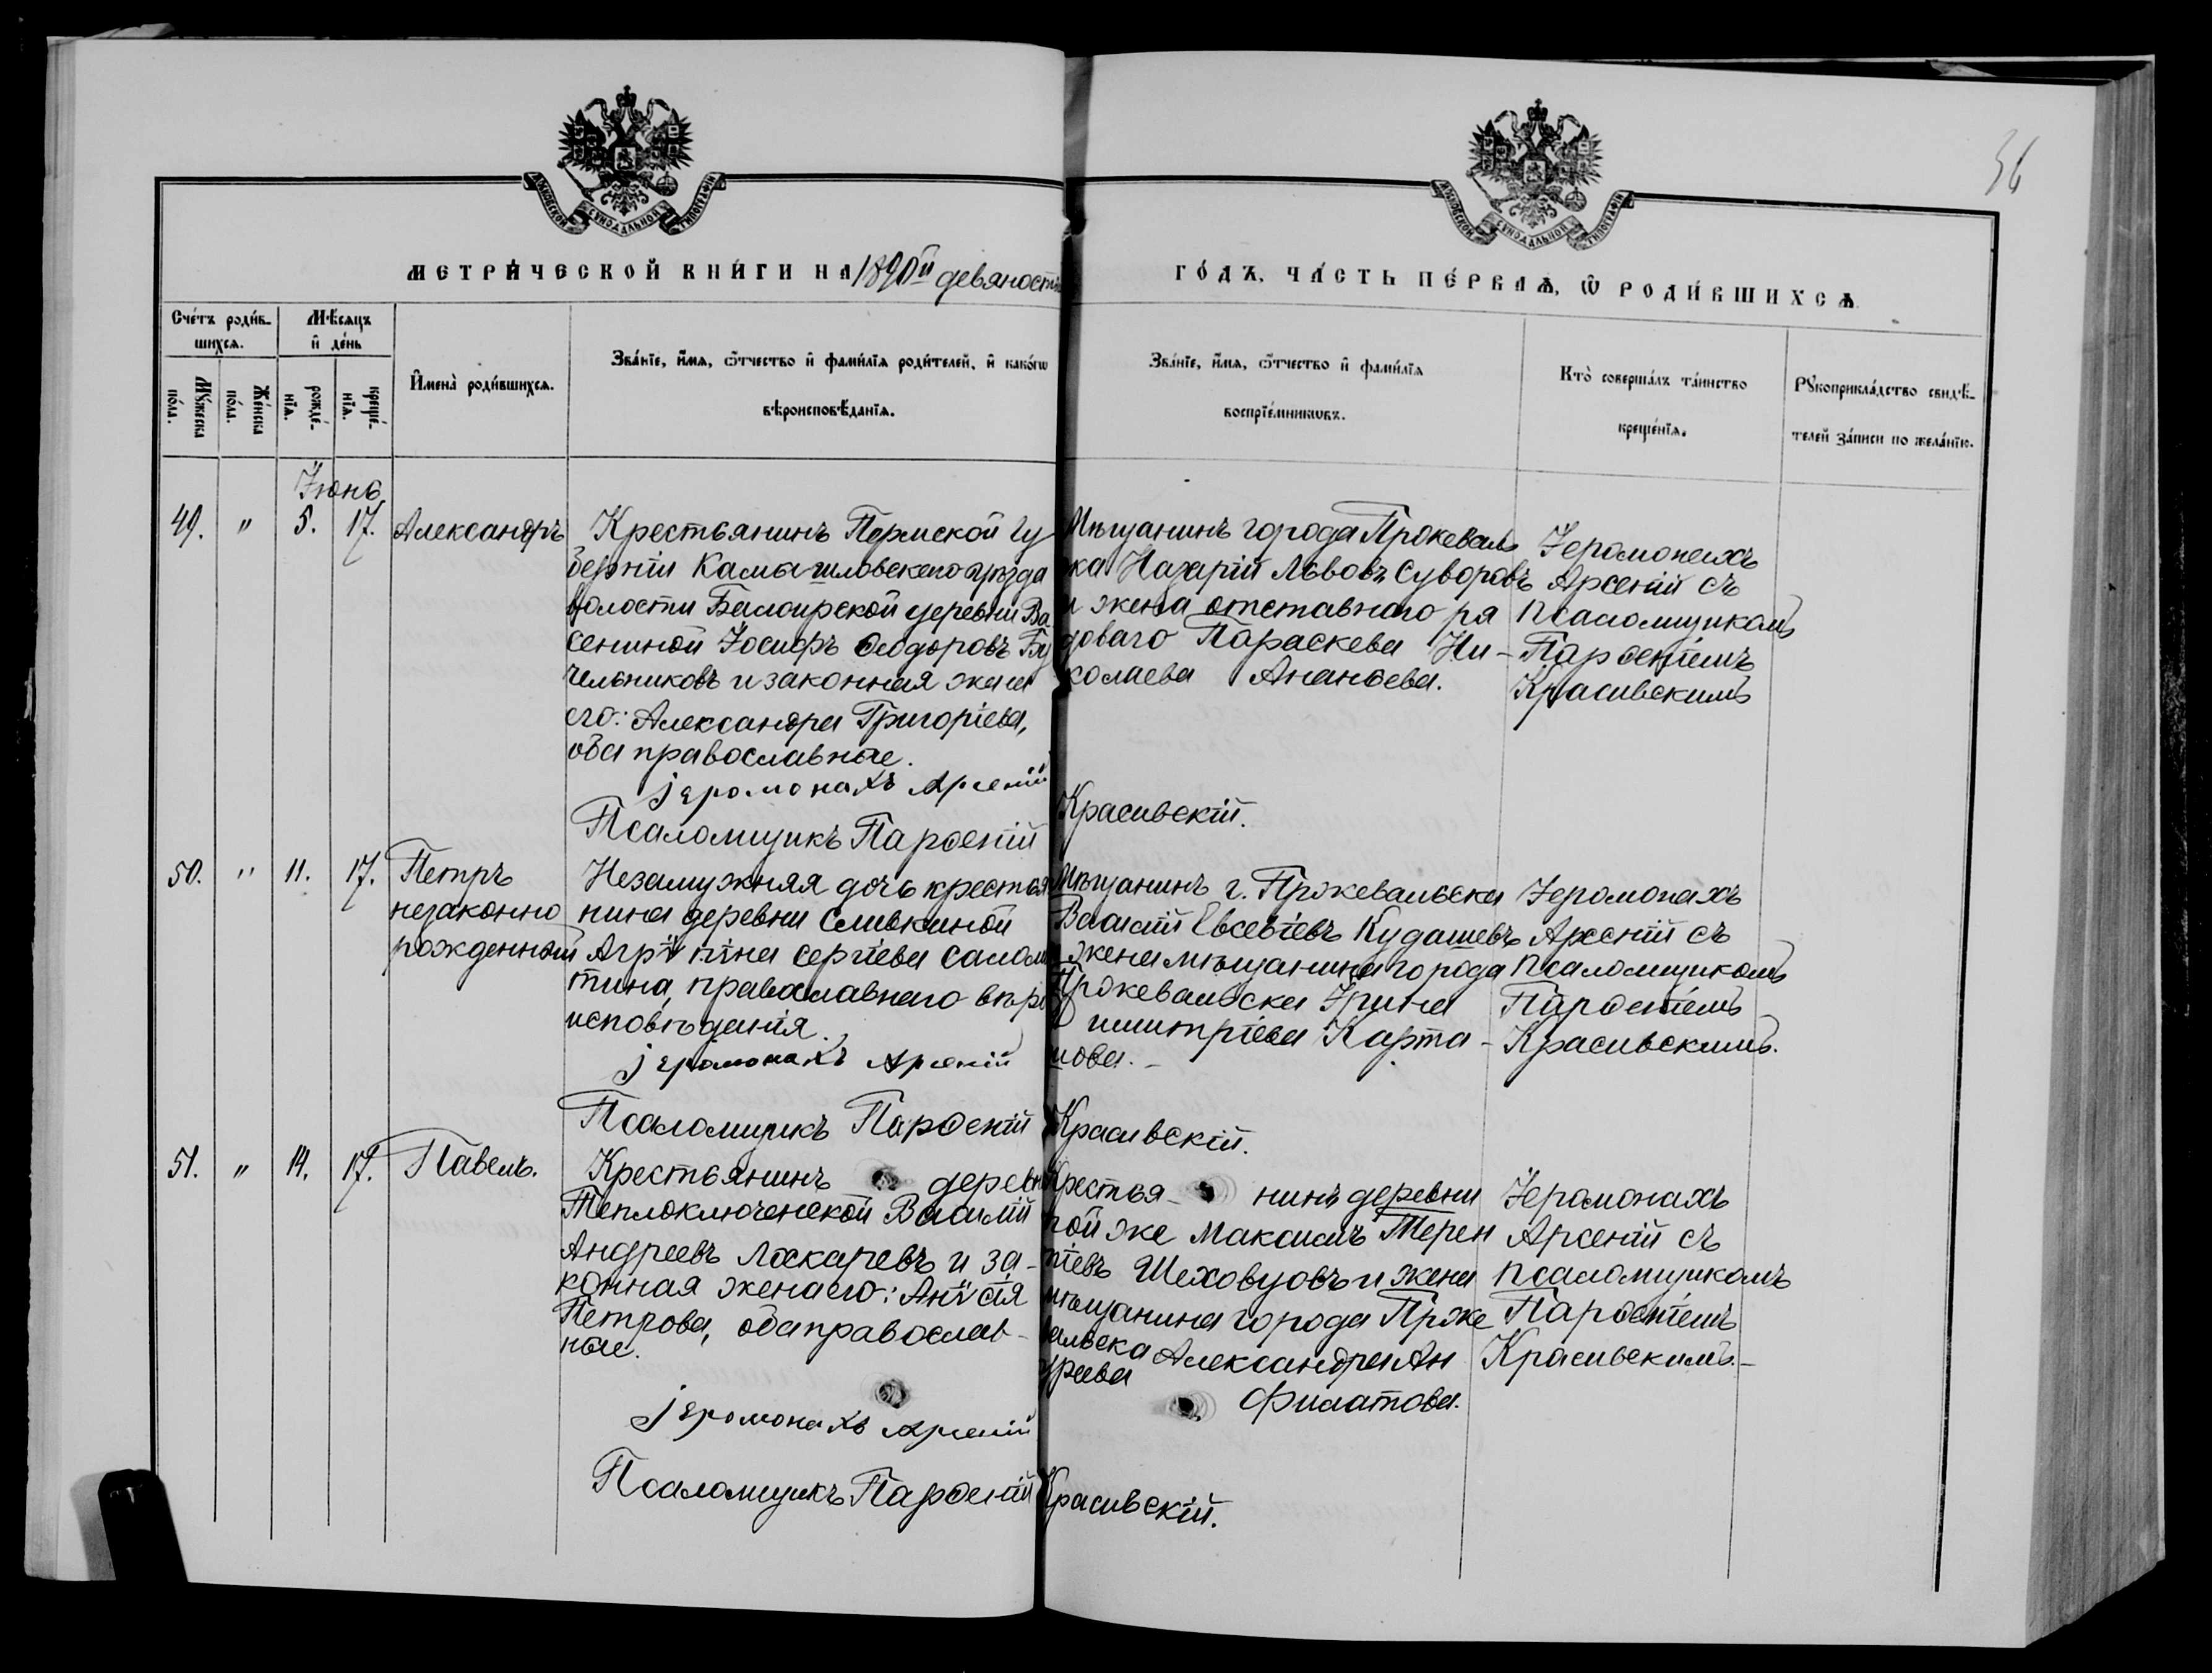 36
МОСКОВСКОЙ СѴНОДАЛЬНОЙ ТИПОГРАФІИ
МОСКОВСКОЙ СѴНОДАЛЬНОЙ ТИПОГРАФІИ
МЕТРИ́ЧЕСКОЙ КНИ́ГИ НА 1890й девяносты
ГО́ДЪ, ЧА́СТЬ ПЕ́РВАѦ, Ѿ РОДИ́ВШИХСѦ
Сче́тъ роди́в-
шихсѧ.
Мѣ́сѧцъ
и҆ де́нь
Мꙋ́жеска
по́ла.
Же́нска
по́ла.
рожде́-
нїѧ.
креще́-
нїѧ.
И҆мена̀ роди́вшихсѧ.
Зва́нїе, и҆́мѧ, ѻ҆́тчество и҆ фами́лїѧ роди́телей, и҆ како́гѡ
вѣроисповѣ́данїѧ.
Зва́нїе, и҆́мѧ, ѻ҆́тчество и҆ фами́лїѧ
воспрїе́мникѡвъ.
Кто̀ соверша́лъ та́инство
креще́нїѧ.
Рꙋкоприкла́дство свидѣ́-
телей за́писи по жела́нїю.
Іюнь
49. " 5. 17. Александръ
Крестьянинъ Пермской гу
берніи Камышловскаго уѣзда
волости деревни Ва-
сениной Іосифъ Ѳеодоровъ Бу
чельниковъ и законная жена
его: Александра Григоріева,
оба православные.
Іеромонахъ Арсеній
Псаломщикъ Парѳеній
Мѣщанинъ города Пржеваль
ска Назарій Львовъ Суворовъ
и жена отставнаго ря
доваго Параскева Ни-
колаева Ананьева.
Красивскій.
Іеромонахъ
Арсеній съ
псаломщикомъ
Парѳеніемъ
Красивскимъ
50. " 11. 17. Петръ
незаконно
рожденный
Незамужняя дочь крестья
нина деревни Сливкиной
Агрипина Сергіева Салома
тина, православнаго вѣро
исповѣданія.
Іеромонахъ Арсеній
Псаломщикъ Парѳеній
Мѣщанинъ г. Пржевальска
Василій Евсевіевъ Кудашевъ
жена мѣщанина города
Пржевальска Ирина
Димитріева Карта-
шова.-
Красивскій.
Іеромонахъ
Арсеній съ
псаломщикомъ
Парѳеніемъ
Красивскимъ.
51. " 14. 17. Павелъ.
Крестьянинъ деревни
Теплоключенской Василій
Андреевъ Лоскаревъ и за-
конная жена его: Анисія
Петрова, оба православ-
ные.
Іеромонахъ Арсеній
Псаломщикъ Парѳеній
Крестья- нинъ деревни
той же Максимъ Терен
тіевъ Шеховцовъ и жена
мѣщанина города Прже
вальска Александра Ан
дреева
Филатова.
Красивскій.
Іеромонахъ
Арсеній съ
псаломщикомъ
Парѳеніемъ
Красивскимъ.-